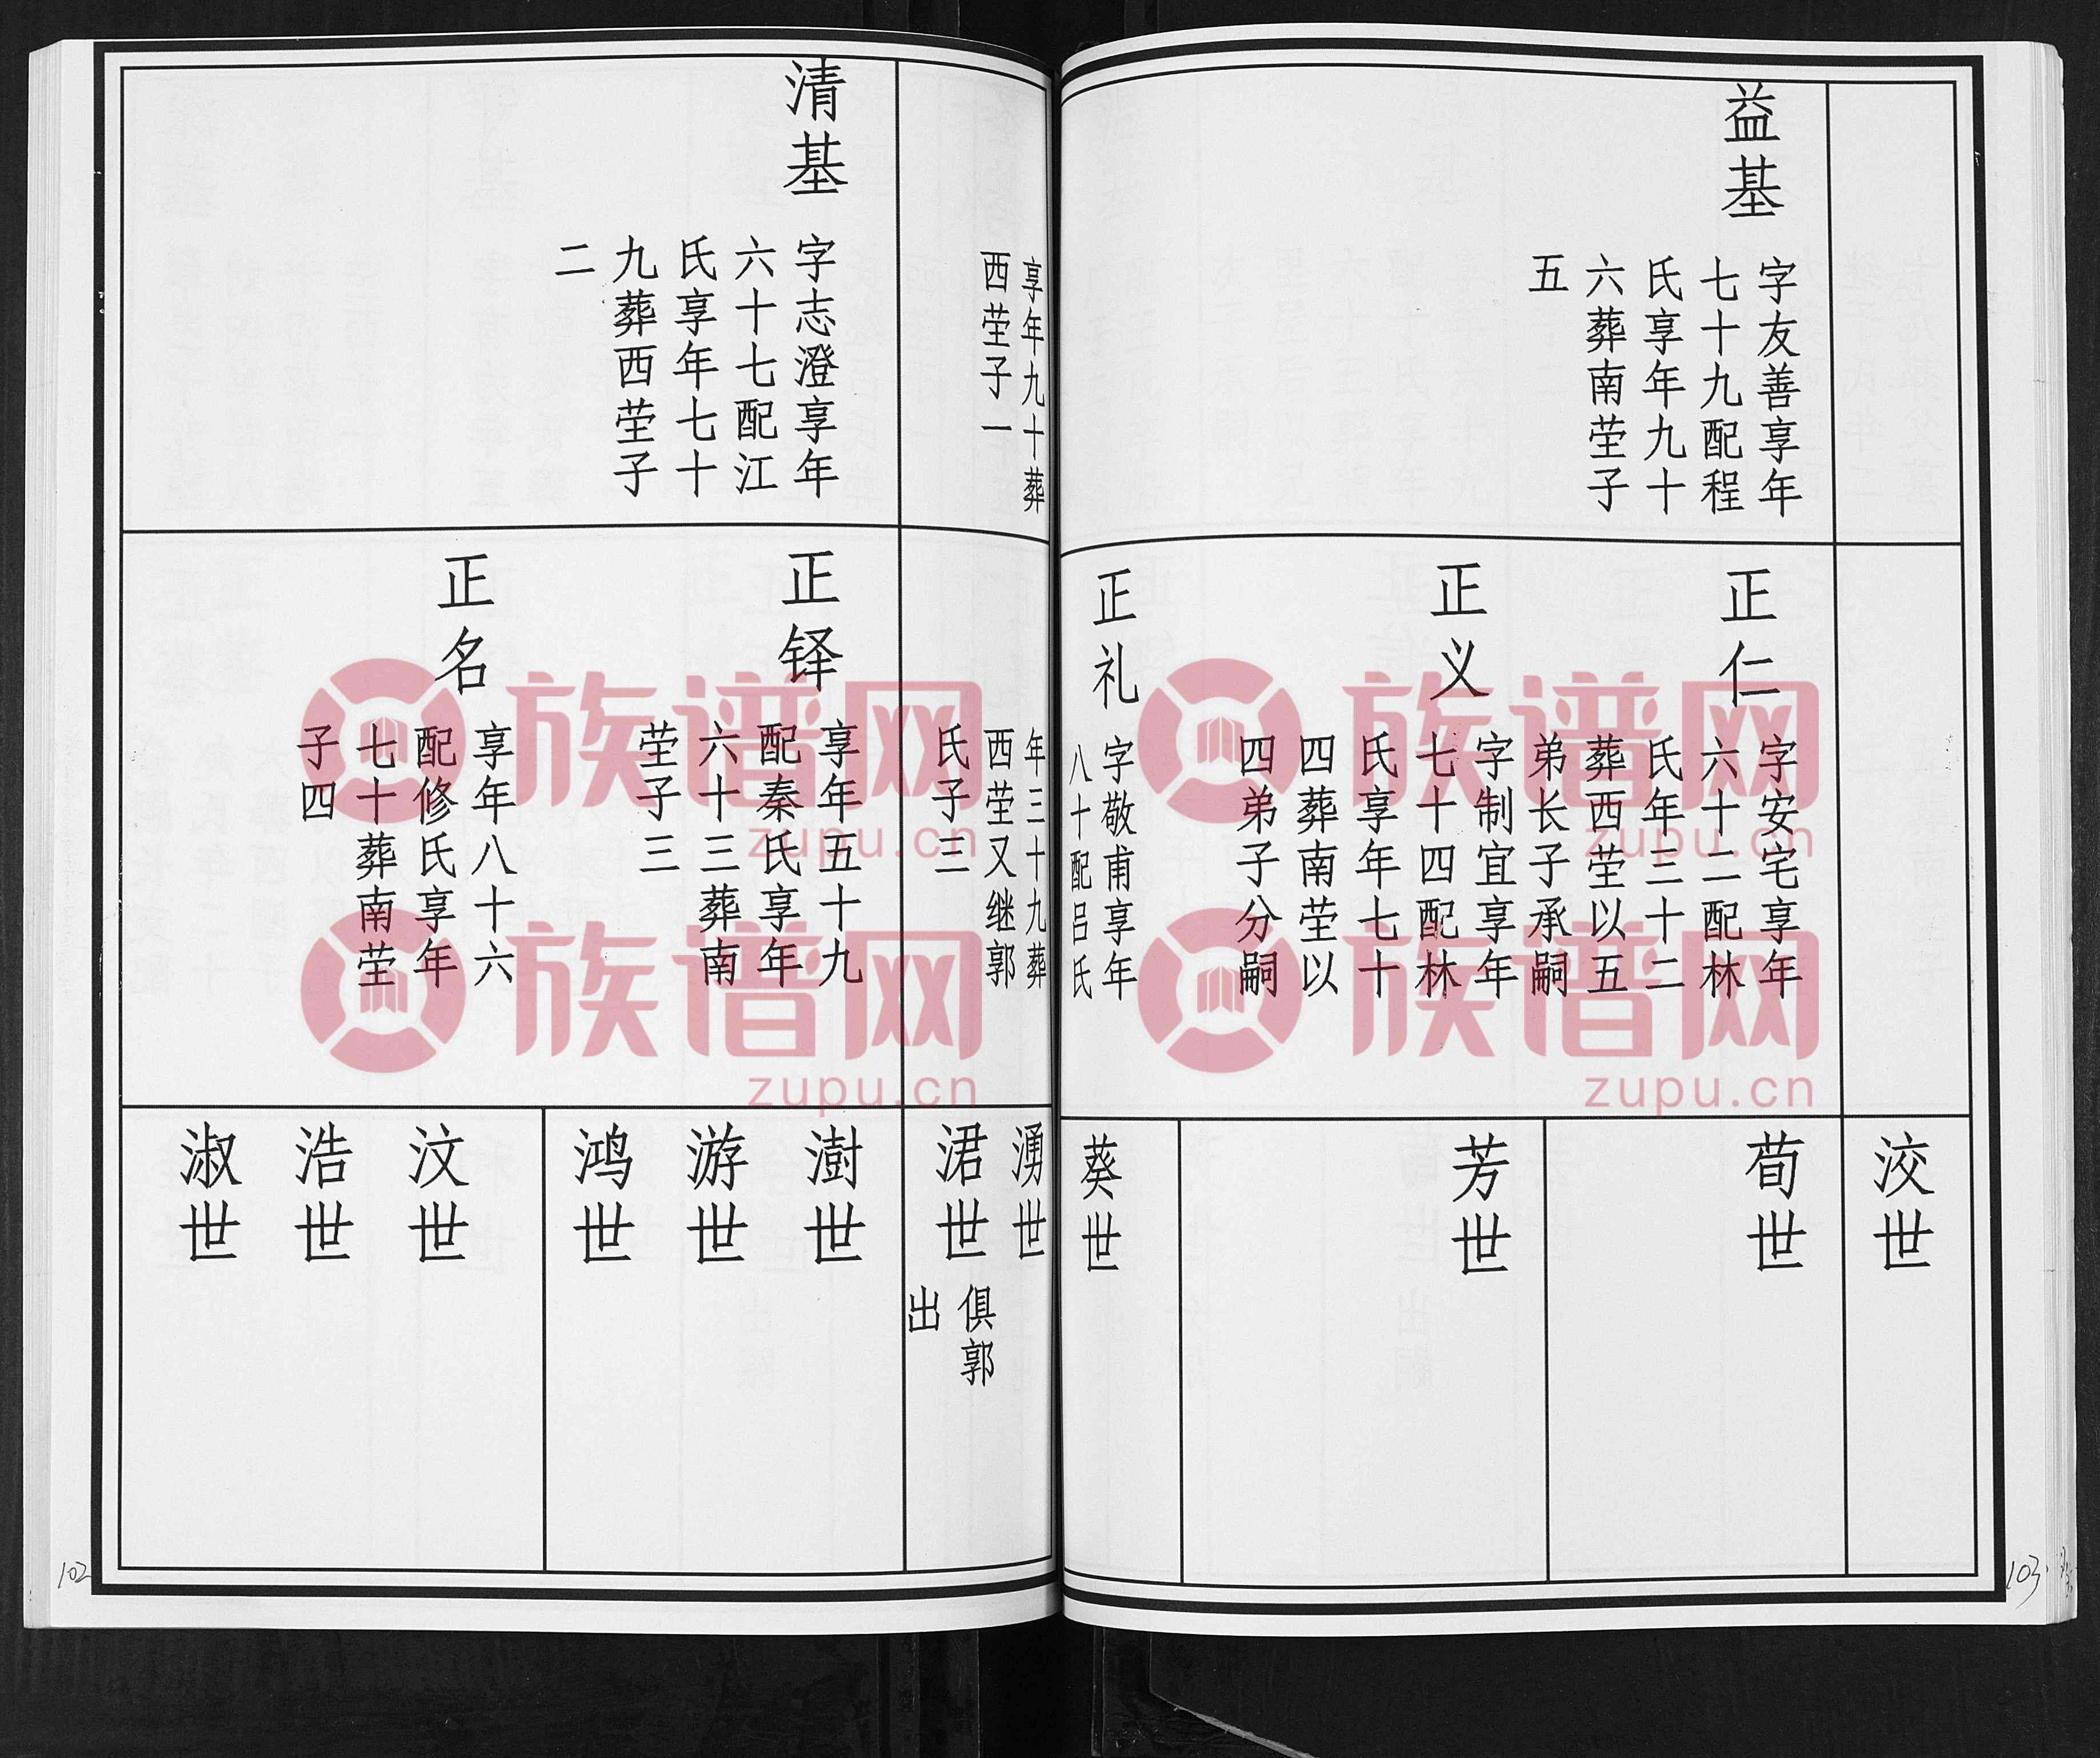 益基
字友善享年
七十九配程
氏享年九十
六葬南茔子
五
正仁
字安宅享年
六十二配林
氏年三十二
葬西茔以五
弟长子承嗣
正义
字制宜享年
七十四配林
氏享年七十
四葬南茔以
四弟子分嗣
正礼
字敬甫享年
八十配吕氏
洨世
荀世
芳世
葵世
享年九十葬
西茔子一
清基
字志澄享年
六十七配江
氏享年七十
九葬西茔子
二
年三十九葬
西茔又继郭
氏子三
正铎
享年五十九
配秦氏享年
六十三葬南
茔子三
正名
享年八十六
配修氏享年
七十葬南茔
子四
湧世
涒世
俱郭
出
澍世
游世
鸿世
汶世
浩世
淑世
102
103
族谱网
zupu.cn
族谱网
zupu.cn
族谱网
zupu.cn
族谱网
zupu.cn